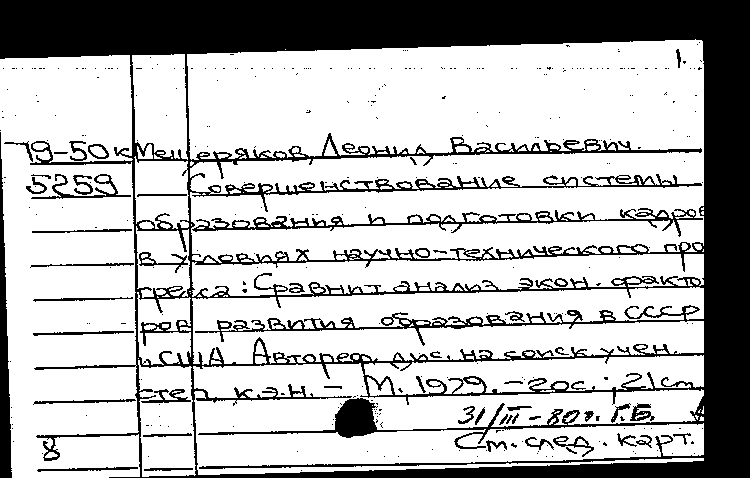 1.
79-50к Мещеряков, Леонид Васильевич.
5259 Совершенствование системы
образования и подготовки кадров
в условиях научно-технического про
гресса: Сравнит. анализ экон. факто
ров развития образования в СССР
и США. Автореф. дис. на соиск. учен.
степ. к.э.н. - М., 1979. - 20с.; 21см.
31/III-80г. Г.Б.
8 См. след. карт.